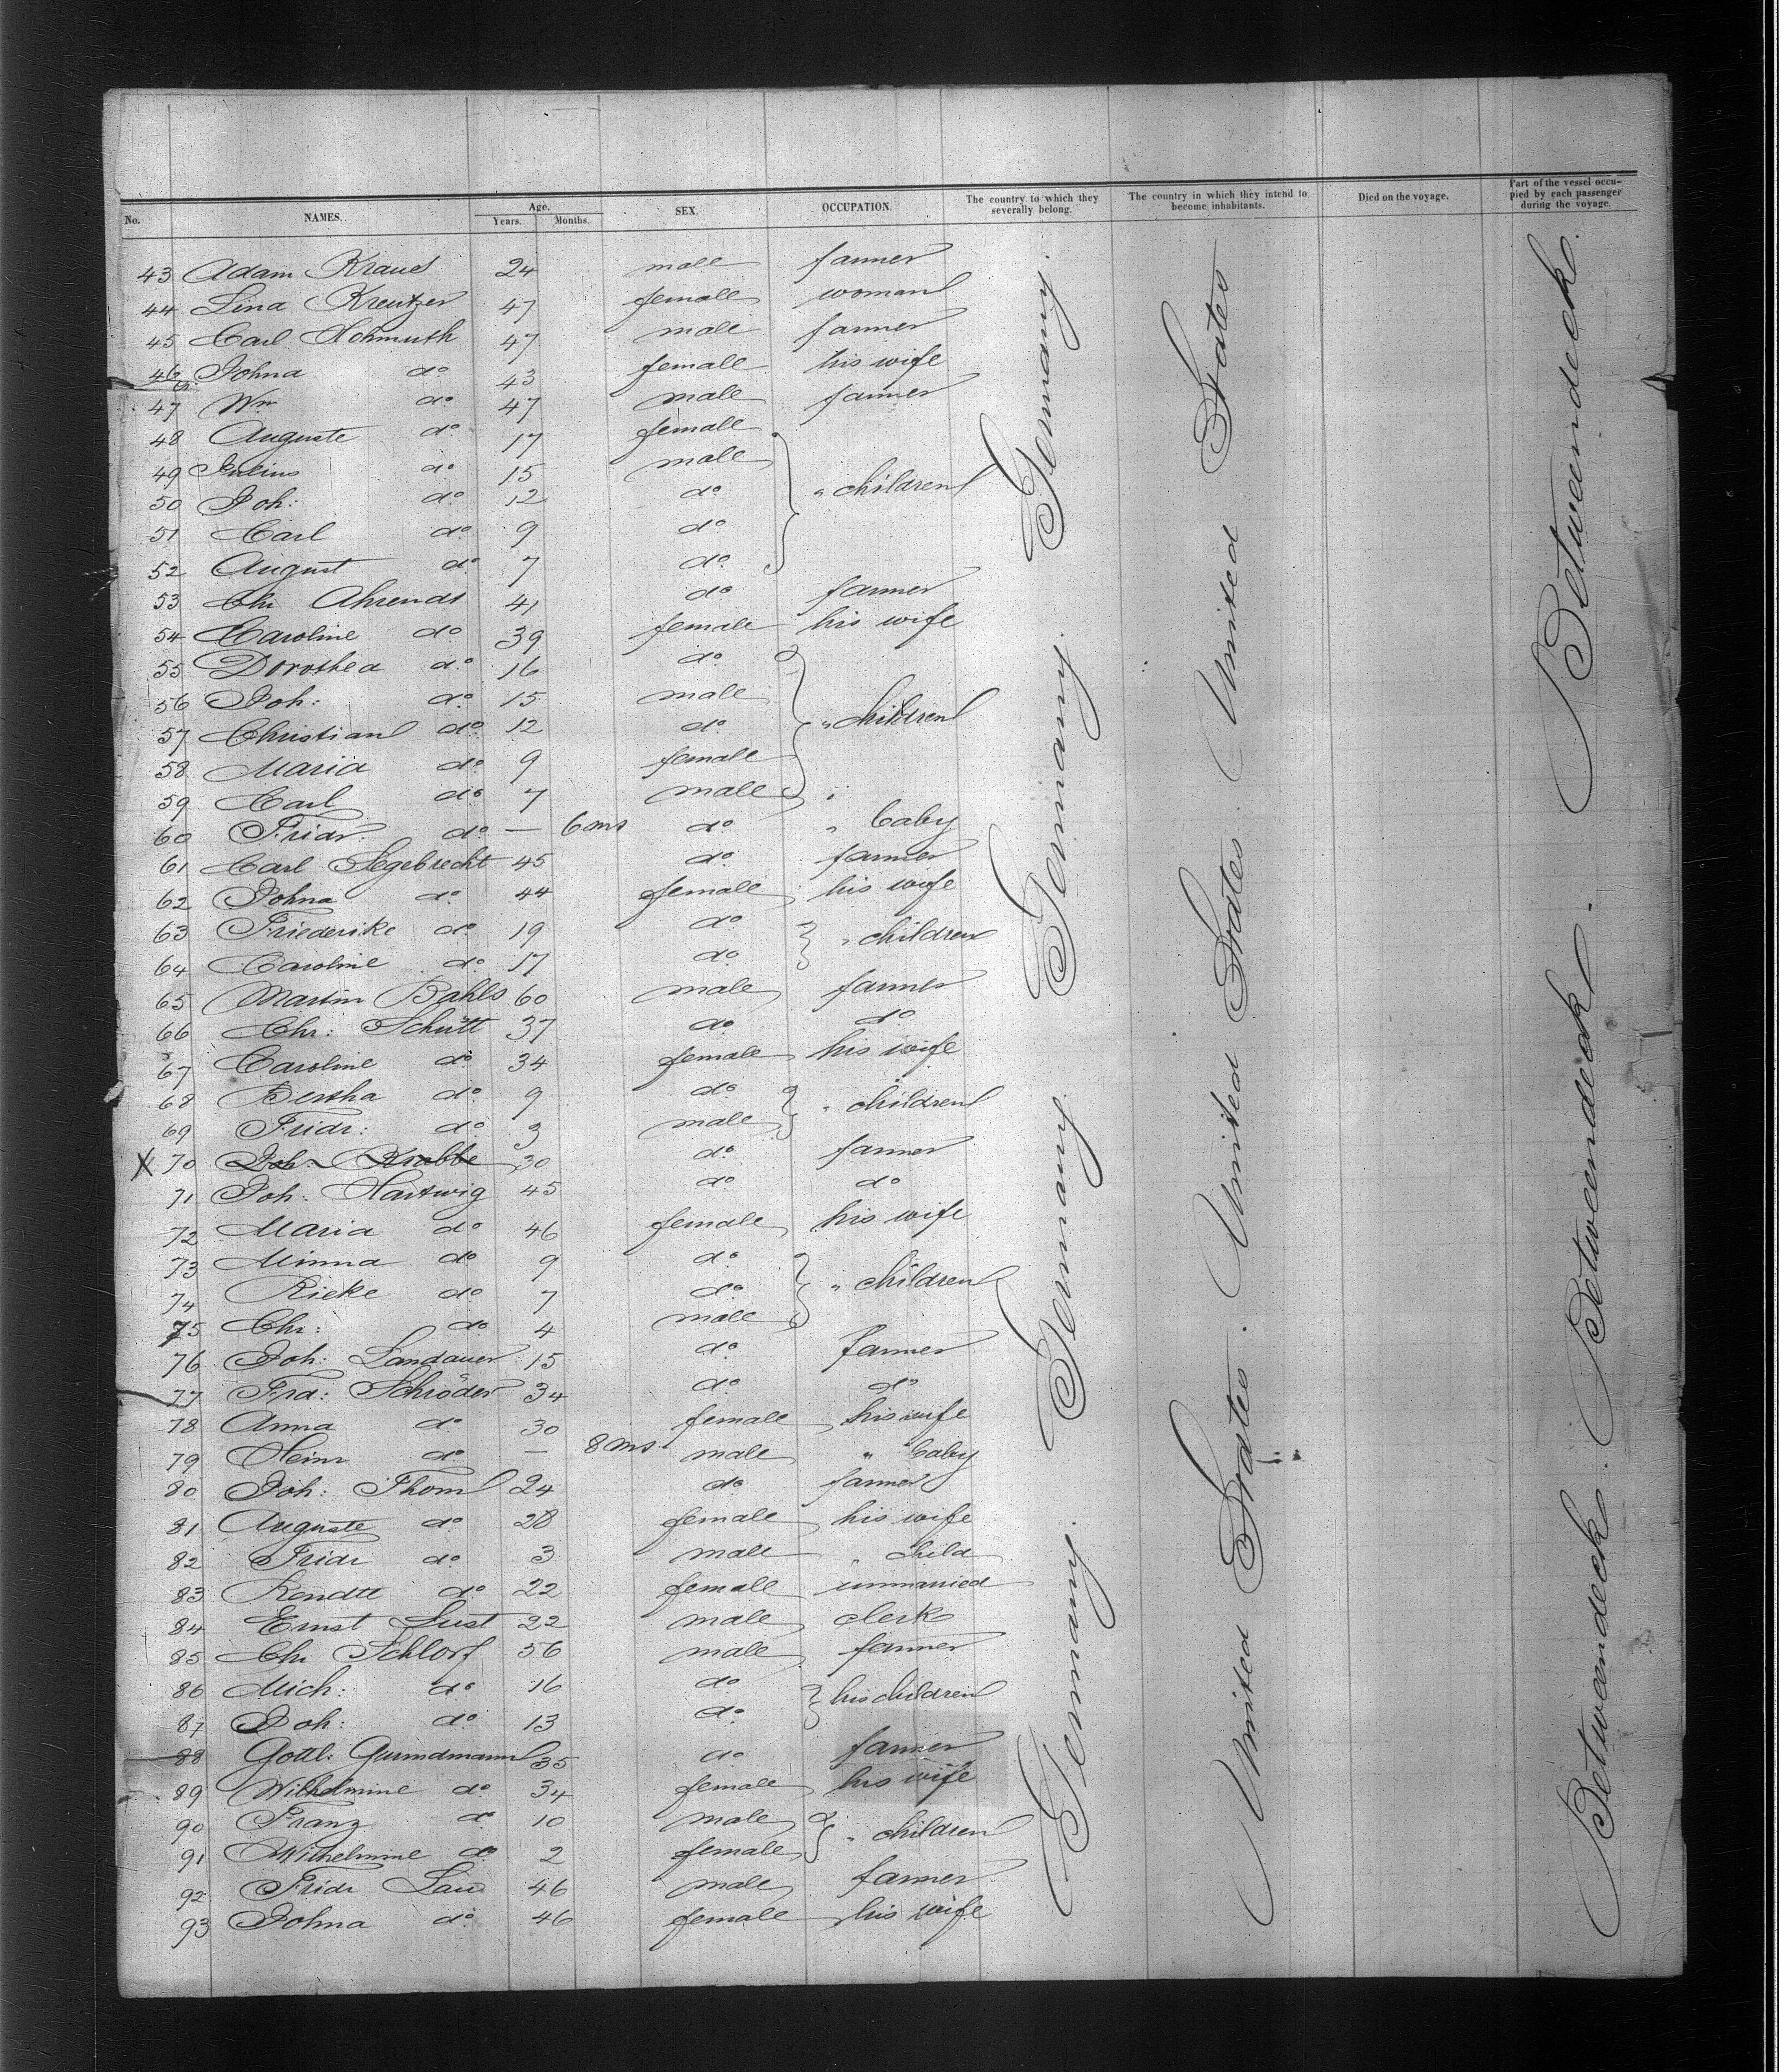 No. NAMES. Age. Years. Months. SEX. OCCUPATION. The country to which they severally belong. The country in which they intend to become inhabitants. Died on the voyage. Part of the vessel occupied by each passenger during the voyage.
43 Adam Kraus 24 male farmer
44 Lina Kreutzer 47 female woman
45 Carl Schmuth 47 male farmer
46 Johna do 43 female his wife
47 Wm do 47 male farmer
48 Auguste do 17 female
49 Julius do 15 male
50 Joh: do 12 do " children
51 Carl do 9 do
52 August do 7 do
53 Chr Ahrends 41 do farmer
54 Caroline do 39 female his wife
55 Dorothea do 16 do
56 Joh: do 15 male
57 Christian do 12 do " children
58 Maria do 9 female
59 Carl do 7 male "
60 Fridr. do — 6 ms do " baby
61 Carl Segebrecht 45 do farmer
62 Johna do 44 female his wife
63 Friederike do 19 do " children
64 Caroline do 17 do
65 Martin Bahls 60 male farmer
66 Chr: Schütt 37 do do
67 Caroline do 34 female his wife
68 Bertha do 9 do " children
69 Fridr: do 3 male
X 70 Joh. Krabbe 30 do farmer
71 Joh. Hartwig 45 do do
72 Maria do 46 female his wife
73 Minna do 9 do
74 Rieke do 7 do " children
75 Chr: do 4 male
76 Joh: Landauer 15 do farmer
77 Frd: Schröder 34 do do
78 Anna do 30 female his wife
79 Heinr do — 8 ms male " baby
80 Joh: Thoml 24 do farmer
81 Auguste do 28 female his wife
82 Fridr do 3 male " child
83 do 22 female unmarried
84 Ernst Lust 22 male clerk
85 Chr Schlorf 56 male farmer
86 Mich: do 16 do his children
87 Joh: do 13 do
88 Gottl: 35 do farmer
89 Wilhelmine do 34 female his wife
90 Franz do 10 male " children
91 Wilhelmine do 2 female
92 Fridr Lau 46 male farmer
93 Johna do 46 female his wife
Germany. Germany. Germany. Germany.
United States. United States. United States
Betweendeck. Betweendeck. Betweendeck.